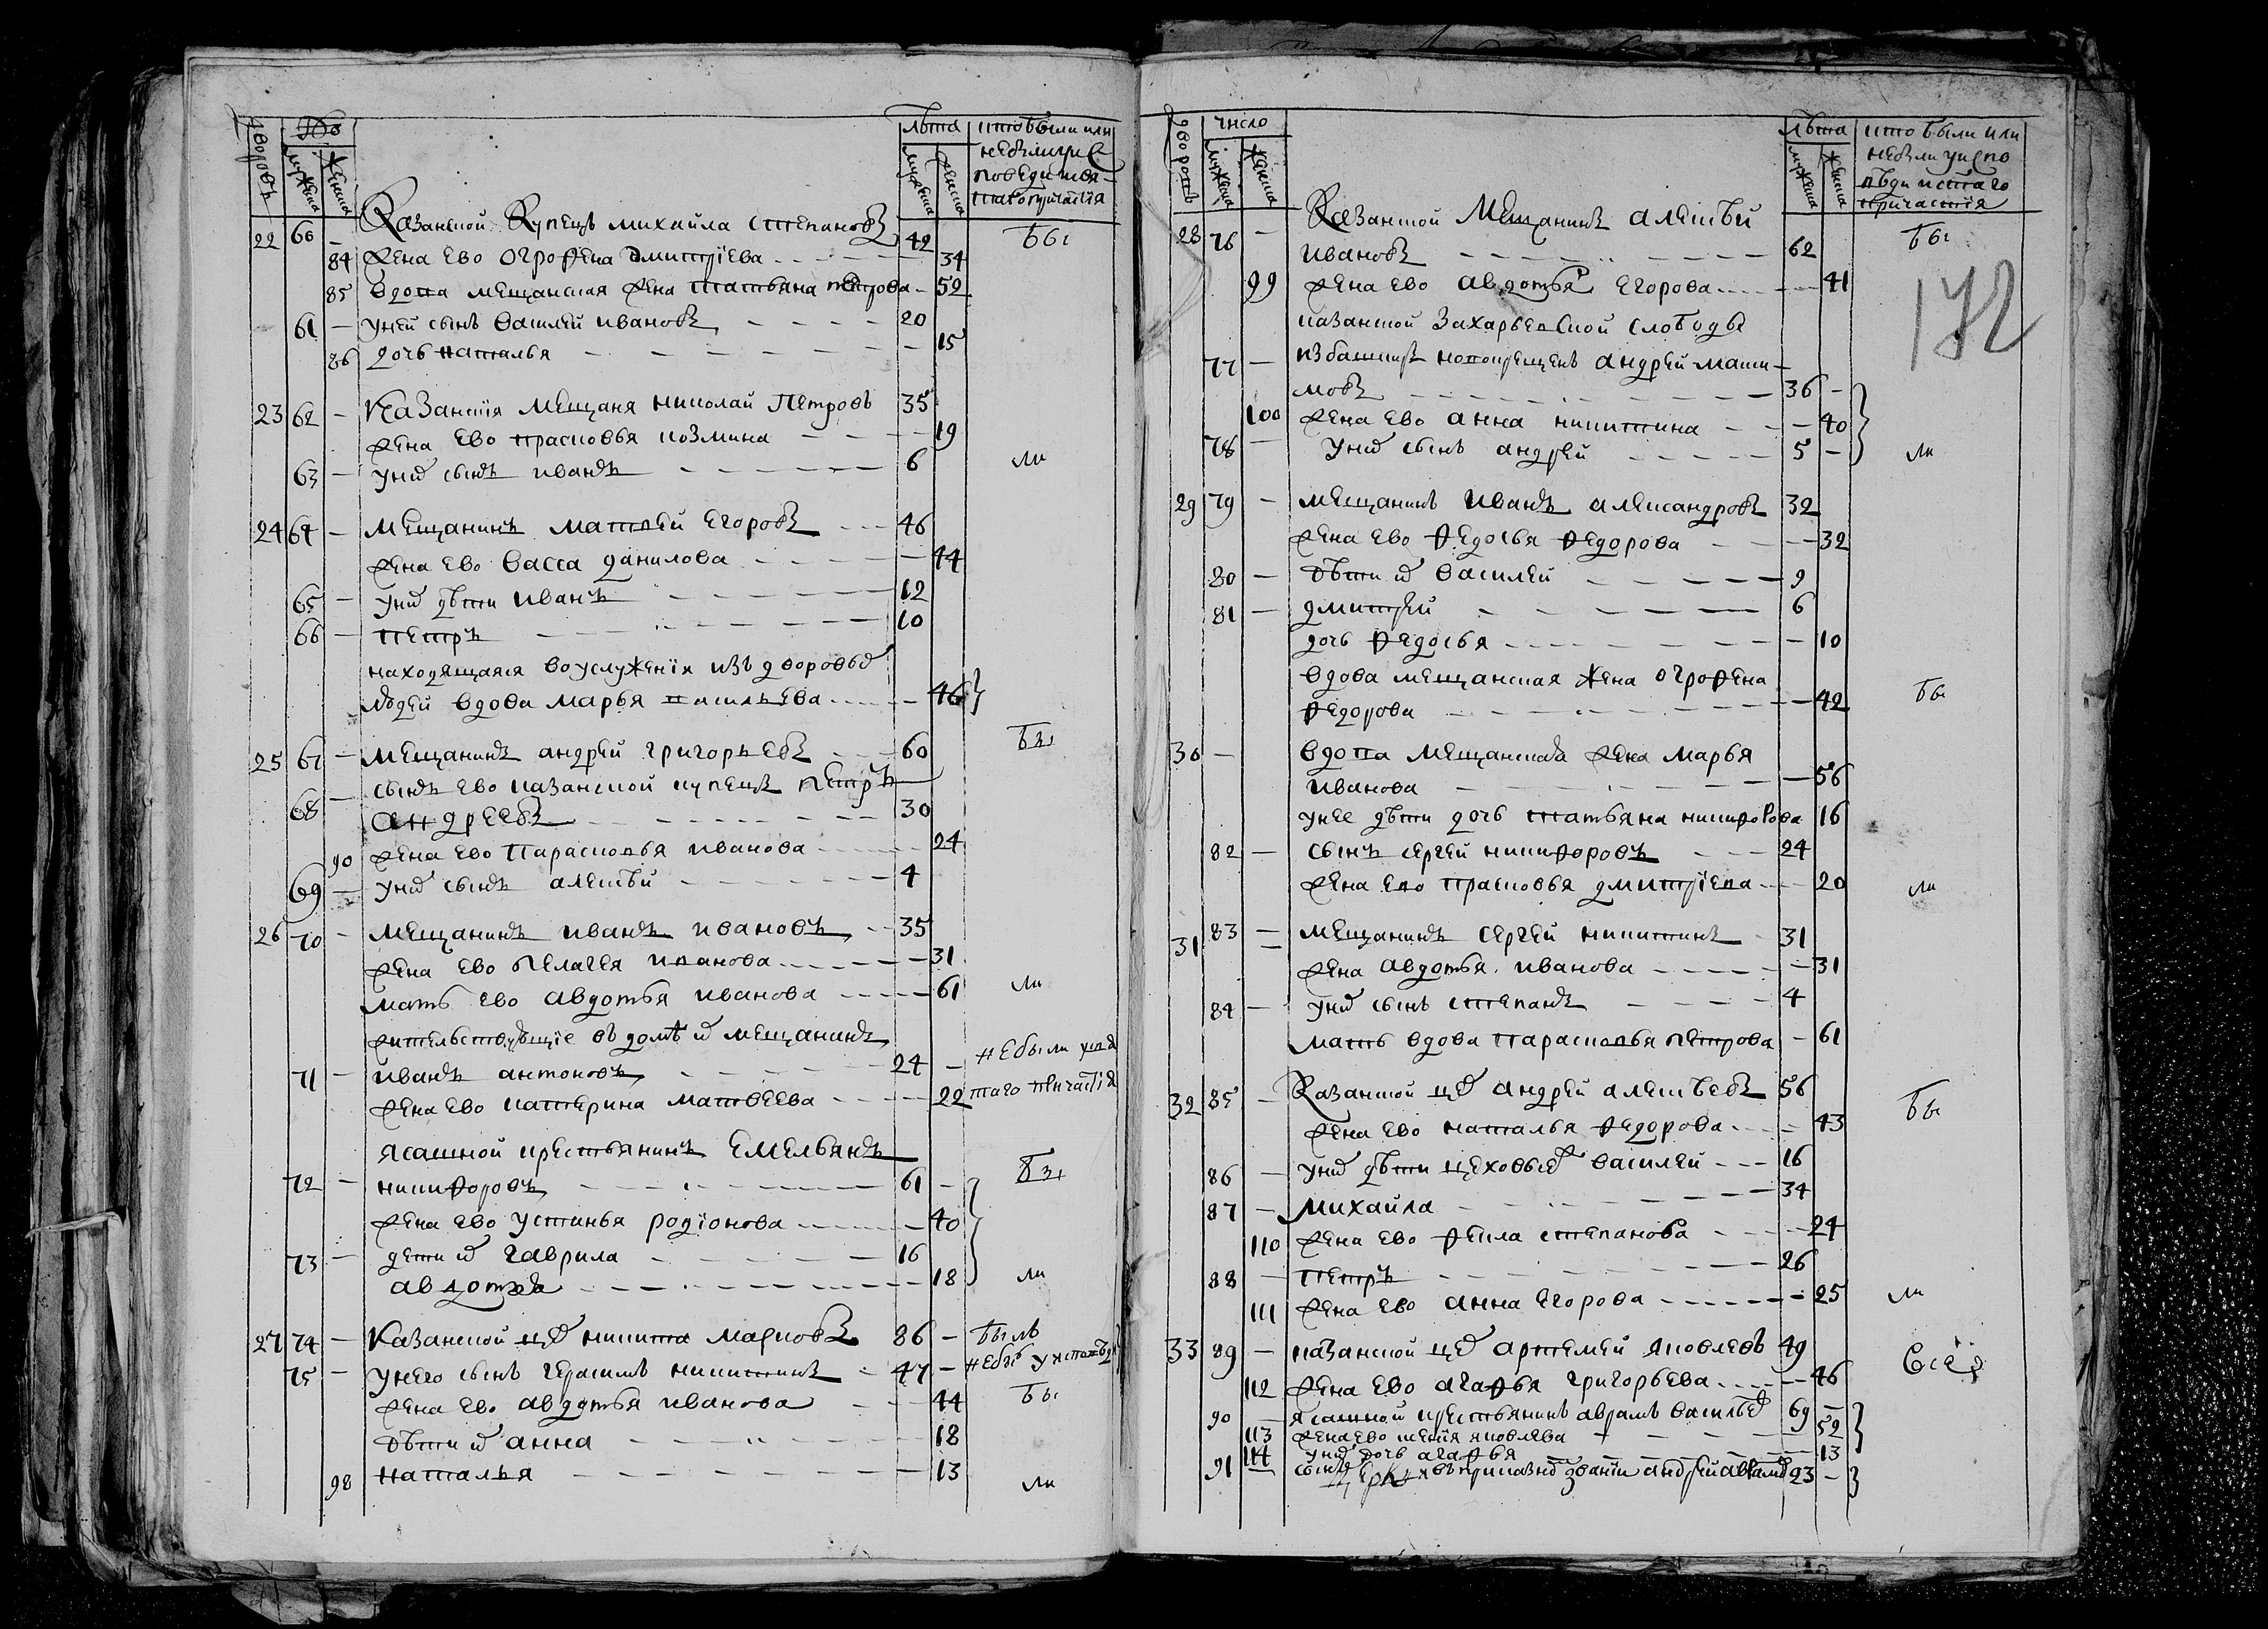 дворовъ
мужеска
женска
лѣта
мужеска
женска
кто были или
22 60 – Казанской купецъ михайла степановъ 42 бы
84 жена ево огрофена дмитрїева 34
85 вдова мещанская жена татьяна петрова 52
61 – у ней сынъ василей ивановъ 20
86 дочь наталья 15
23 62 – Казанскія мещаня николай Петровъ 35
жена ево прасковья козмина 19
63 – у них сынъ иванъ 6 ли
24 64 – мещанинъ матвей егоровъ 46
жена ево васса данилова 44
65 – у них дѣти иванъ 12
66 – петръ 10
находящаяся во услуженїи изъ дворовых
людей вдова марья васильева 46
25 67 – мещанинъ андрей григорьевъ 60 бы
68 – сынъ ево казанской купецъ петръ
андреевъ 30
90 жена ево парасковья иванова 24
69 – у них сынъ алексѣй 4
26 70 – мещанинъ иванъ ивановъ 35
жена ево пелагея иванова 31
мать ево авдотья иванова 61 ли
жительствующїе въ домѣ их мещанинъ
71 – иванъ антоновъ 24 – небыли у св
жена ево катерина матвеева 22 таго причастїя
ясашной крестьянинъ емельянъ бы
72 – никифоровъ 61 –
жена ево устинья родїонова 40
73 – дети их гаврила 16
авдотья 18 ли
27 74 – Казанской цех никита марковъ 86 – былъ
75 – у него сынъ герасимъ никитинъ 47 –
жена ево авдотья иванова 44 бы
дѣти их анна 18
98 наталья 13 ли
дворовъ
число
мужеска
женска
лѣта
мужеска
женска
кто были или
небыли у испо
вѣди и стаго
причастїя
28 76 – Казанской мещанинъ алексѣй бы
ивановъ 62
99 жена ево авдотья егорова 41
172
казанской захарьевской слободы
77 – из башкиръ новокрещенъ андрей макси–
мовъ 36 –
100 жена ево анна никитина 40
78 – у них сынъ андрей 5 – ли
29 79 – мещанинъ иванъ александровъ 32
жена ево федосья федорова 32
80 – дѣти их василей 9
81 – дмитрей 6
дочь федосья 10
вдова мещанская жена огрофена
федорова 42 бы
30 – вдова мещанская жена марья
иванова 56
у нее дѣти дочь татьяна никифорова 16
82 – сынъ сергей никифоровъ 24
жена ево прасковья дмитрїева 20 ли
31 83 – мещанинъ сергей никитинъ 31
жена авдотья иванова 31
84 – у них сынъ степанъ 4
мать вдова парасковья петрова 61
32 85 – Казанской цех андрей алексѣевъ 56 бы
жена ево наталья федорова 43
86 – у них дѣти цеховые василей 16
87 – михайла 34
110 жена ево фекла степанова 24
88 – петръ 26
111 жена ево анна егорова 25 ли
33 89 – казанской цех артемей яковлевъ 49
112 жена ево агафья григорьева 46
90 – ясашной крестьянинъ аврамъ васильев 69 –
113 жена ево яковлева 52
114 у них дочь агафья 13
91 – сынъ андрей 23 –